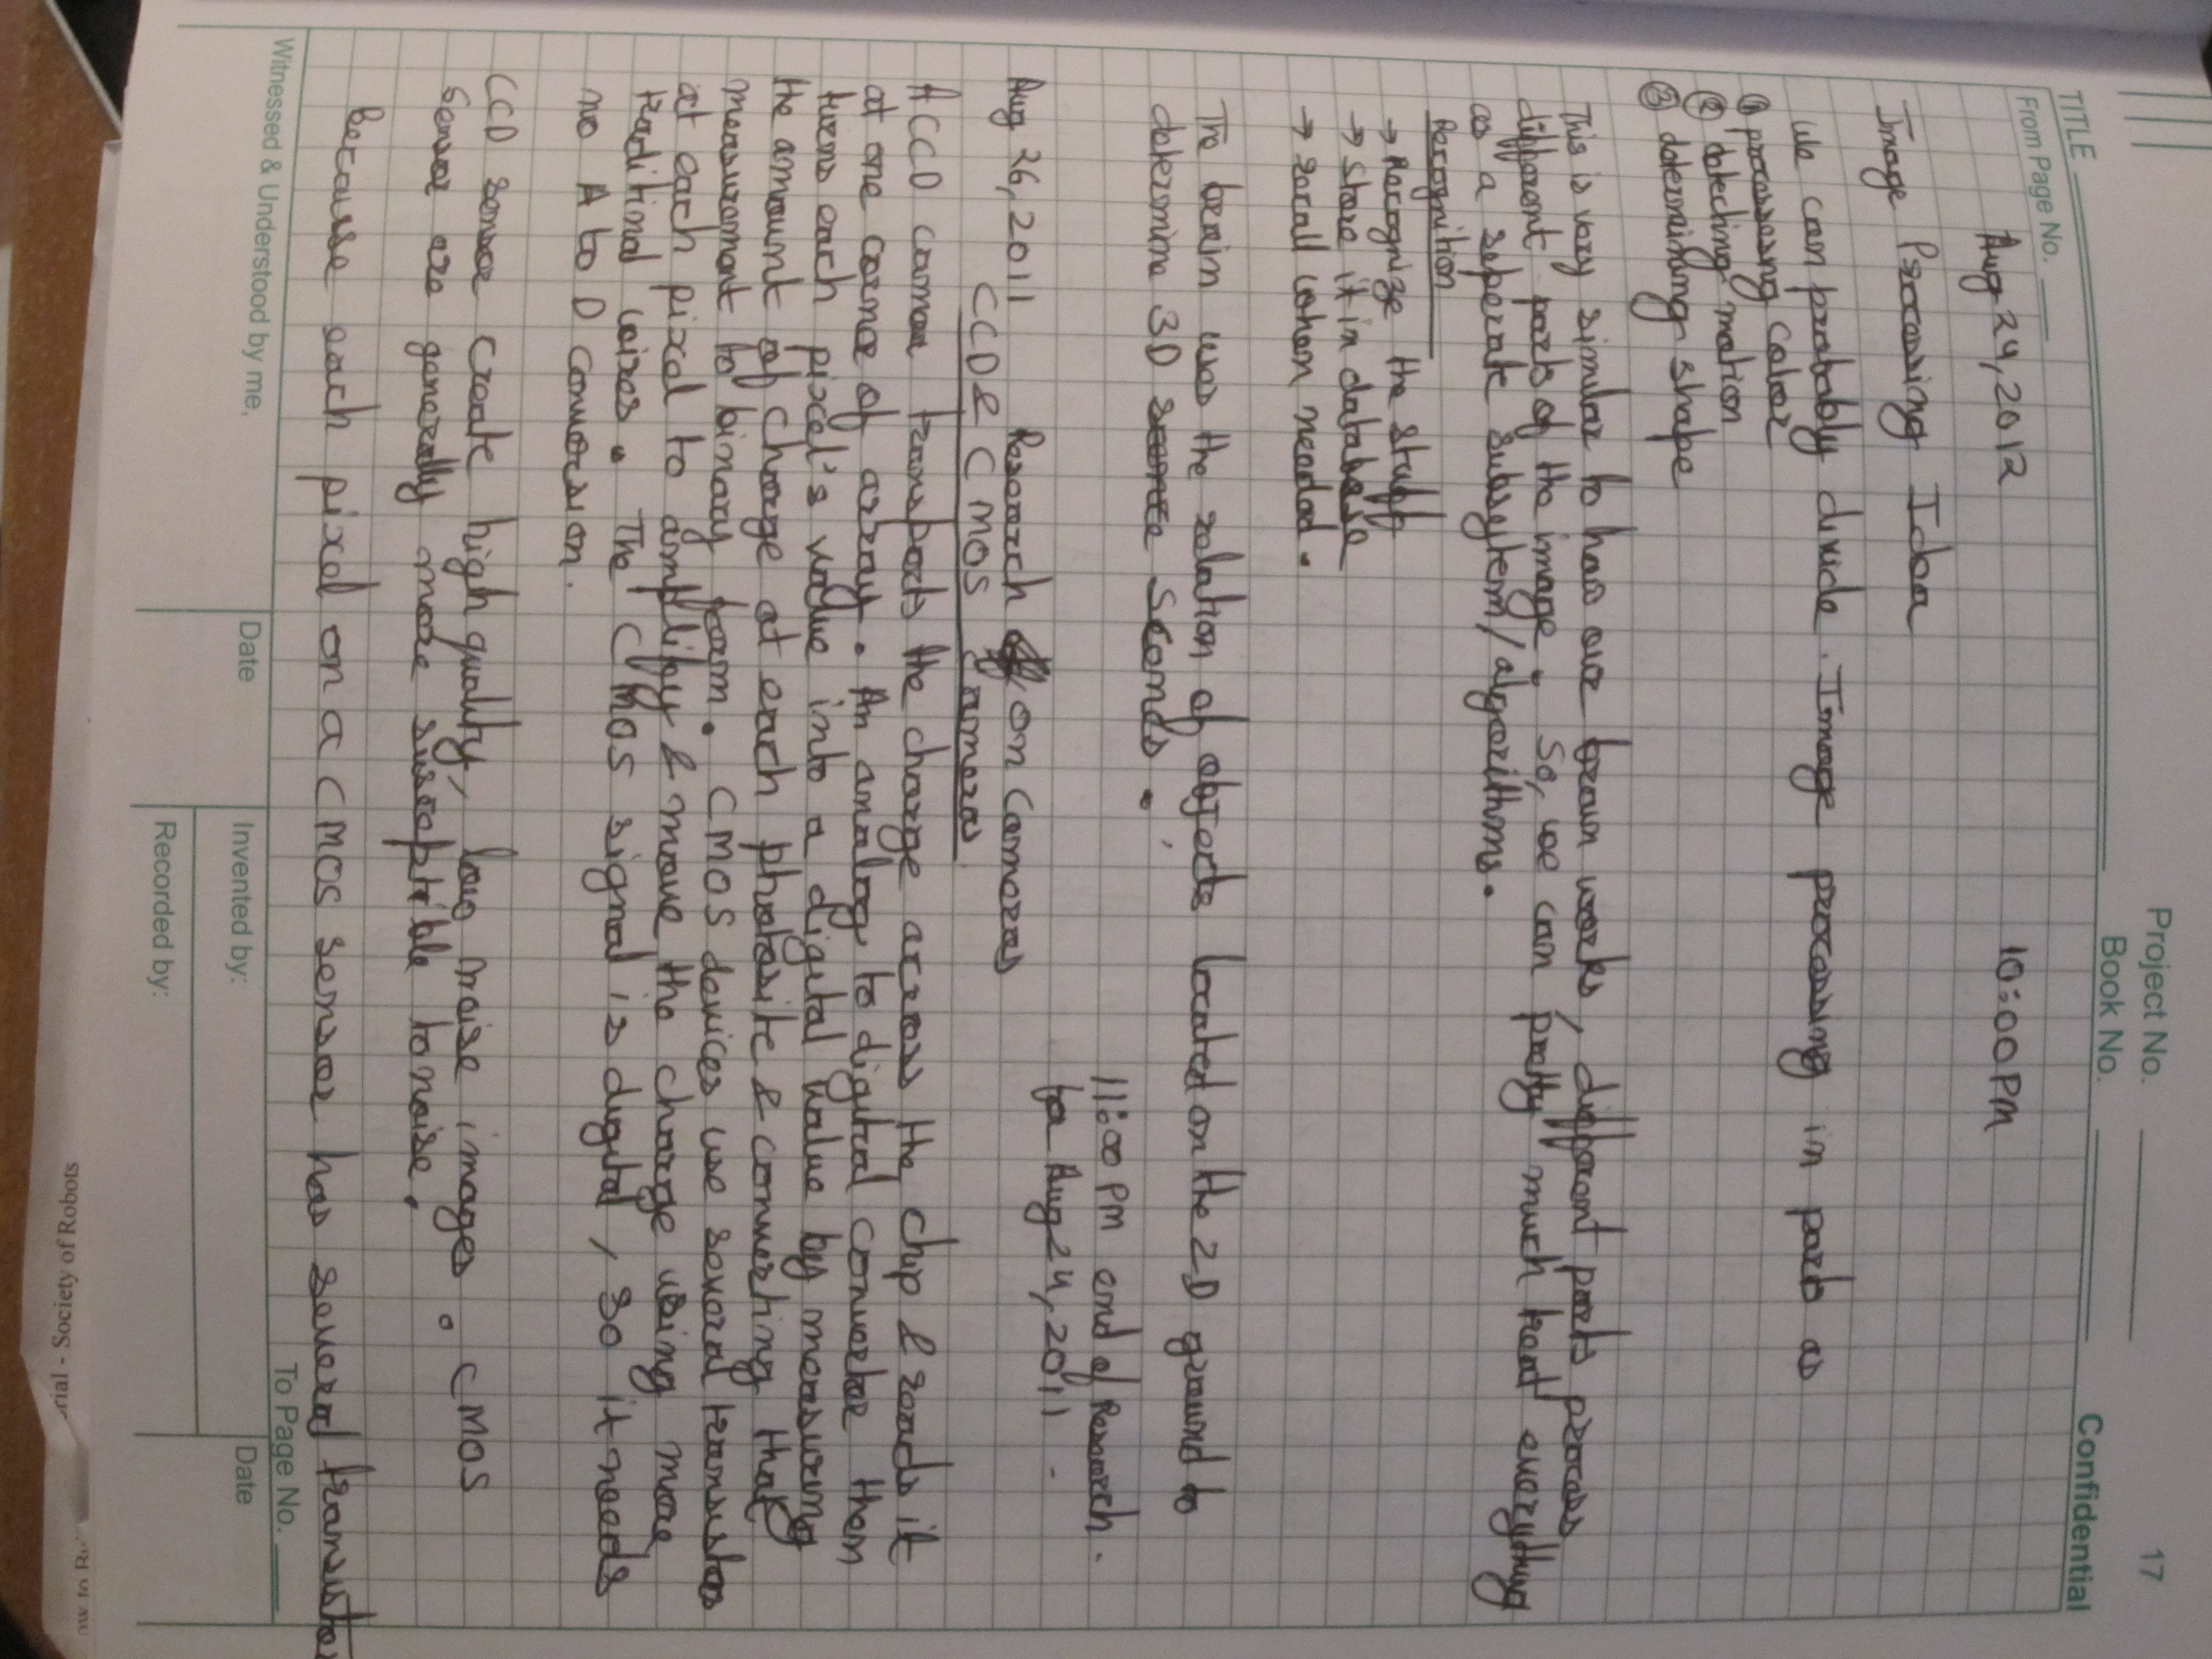 Project No.
17
Book No.
Confidential
TITLE
From Page No.
Aug 24, 2012 10:00 PM
Image Processing Idea
We can probably divide. Image processing in parts as
① processing color
② detecting motion
③ determining shape
This is very similar to how our brain works, different parts process
different parts of the image. So, we can pretty much treat everything
as a seperate subsytem/algorithms.
Recognition
→ Recognize the stuff
→ store it in database
→ recall when needed.
The brain uses the relation of objects located on the 2D ground to
determine 3D Seconds.
11:00 PM end of Research.
for Aug 24, 2011 -
Aug 26, 2011 Research on Cameras
CCD & CMOS Cameras
A CCD camera transports the charge across the chip & reads it
at one corner of array. An analog to digital converter then
turns each pixel's value into a digital value by measuring
the amount of charge at each photosite & converting that
measurement to binary form. CMOS devices use several transistors
at each pixel to amplify & move the charge using more
traditional wires. The CMOS signal is digital, so it needs
no A to D Conversion.
CCD sensor create high quality, low noise images. CMOS
sensor are generally more susceptible to noise.
Because each pixel on a CMOS sensor has several transistor
To Page No.
Witnessed & Understood by me,
Date
Invented by:
Date
Recorded by:
rial - Society of Robots